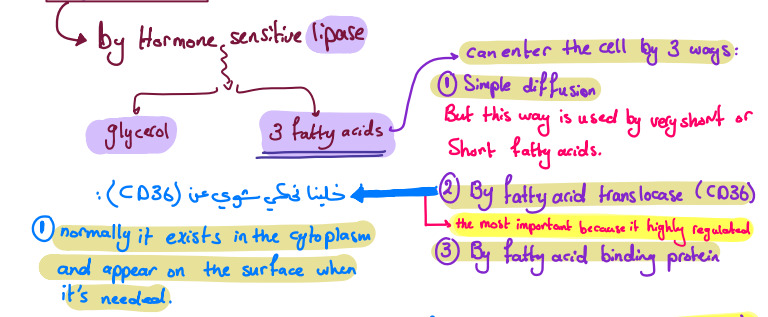 by Hormone sensitive lipase
glycerol
3 fatty acids
can enter the cell by 3 ways:
① Simple diffusion
But this way is used by very short or
Short fatty acids.
② By fatty acid translocase (CD36)
the most important because it highly regulated
③ By fatty acid binding protein
خلينا نحكي شوي عن (CD36):
① normally it exists in the cytoplasm
and appear on the surface when
it's needed.